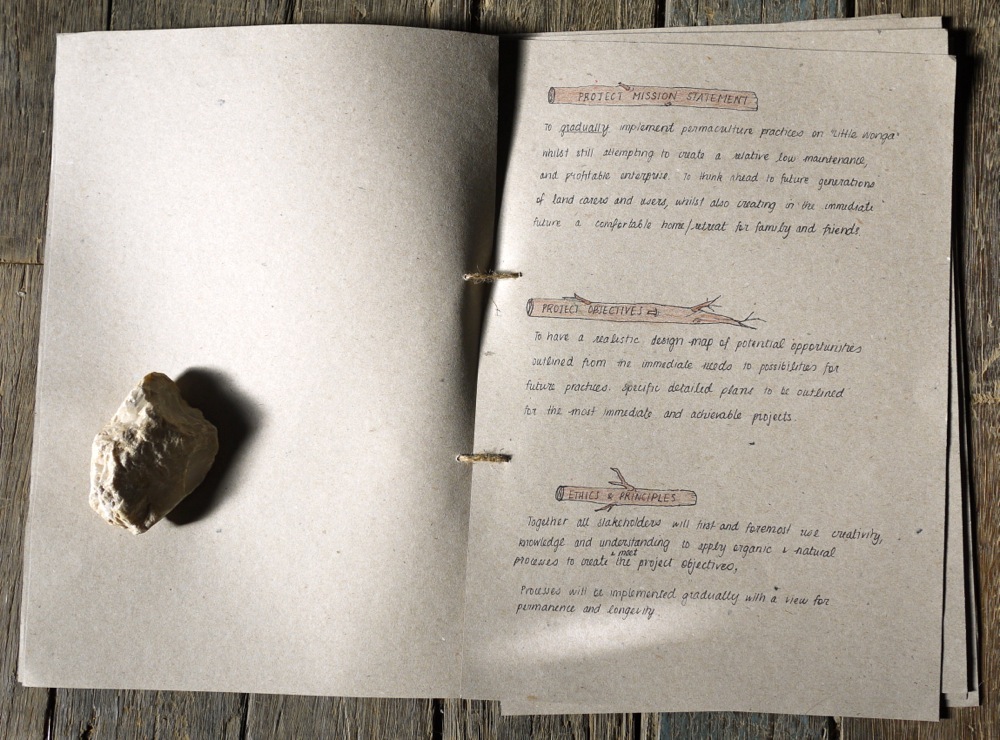 PROJECT MISSION STATEMENT
To gradually implement permaculture practices on "Little Wonga"
whilst still attempting to create a relative low maintenance,
and profitable enterprise. To think ahead to future generations
of land carers and users, whilst also creating in the immediate
future a comfortable home/retreat for family and friends.
PROJECT OBJECTIVES
To have a realistic design map of potential opportunities
outlined from the immediate needs to possibilities for
future practices. Specific detailed plans to be outlined
for the most immediate and achievable projects.
ETHICS & PRINCIPLES
Together all stakeholders will first and foremost use creativity,
knowledge and understanding to apply organic + natural
processes to create + meet the project objectives,
Processes will be implemented gradually with a view for
permanence and longevity